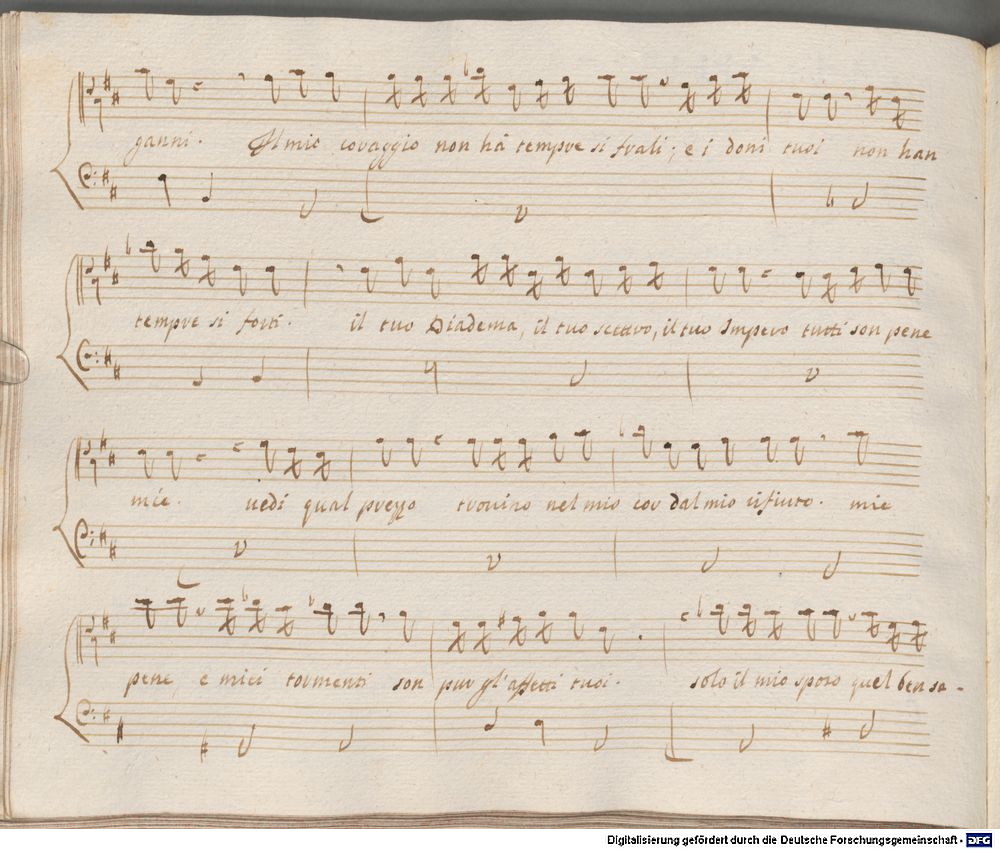 ganni. Il mio coraggio non hà tempre si frali; e i doni tuoi non han
tempre si forti. il tuo Diadema, il tuo scettro, il tuo Impero tutti son pene
mie. uedi qual prezzo trovino nel mio cor dal mio rifiuto. mie
pene, e miei tormenti son pur gl'affetti tuoi. solo il mio sposo quel ben sa-
Digitalisierung gefördert durch die Deutsche Forschungsgemeinschaft - DFG